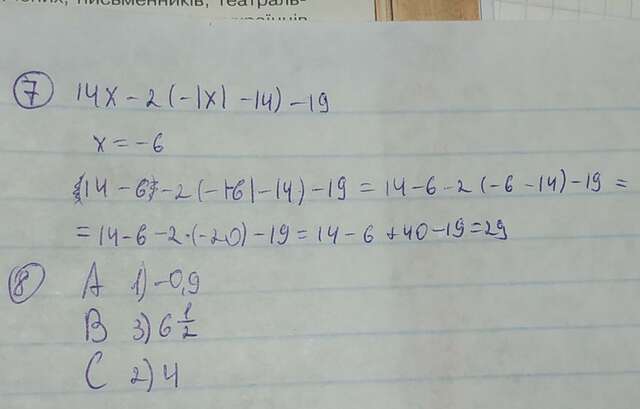 письменників, театраль-
7 14x - 2 (-|x| - 14) - 19
x = -6
14 - 6 - 2 (-|-6| - 14) - 19 = 14 - 6 - 2 (-6 - 14) - 19 =
= 14 - 6 - 2 · (-20) - 19 = 14 - 6 + 40 - 19 = 29
8 A 1) -0,9
B 3) 6 1/2
C 2) 4